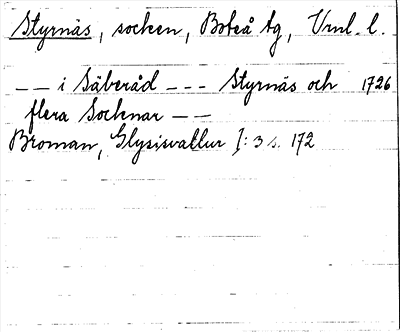 Styrnäs, socken, Boteå tg, Vrnl. l.
-- i Säberåd --- Styrnäs och 1726
flera Socknar --
Broman, Glysisvallur I: 3 s. 172